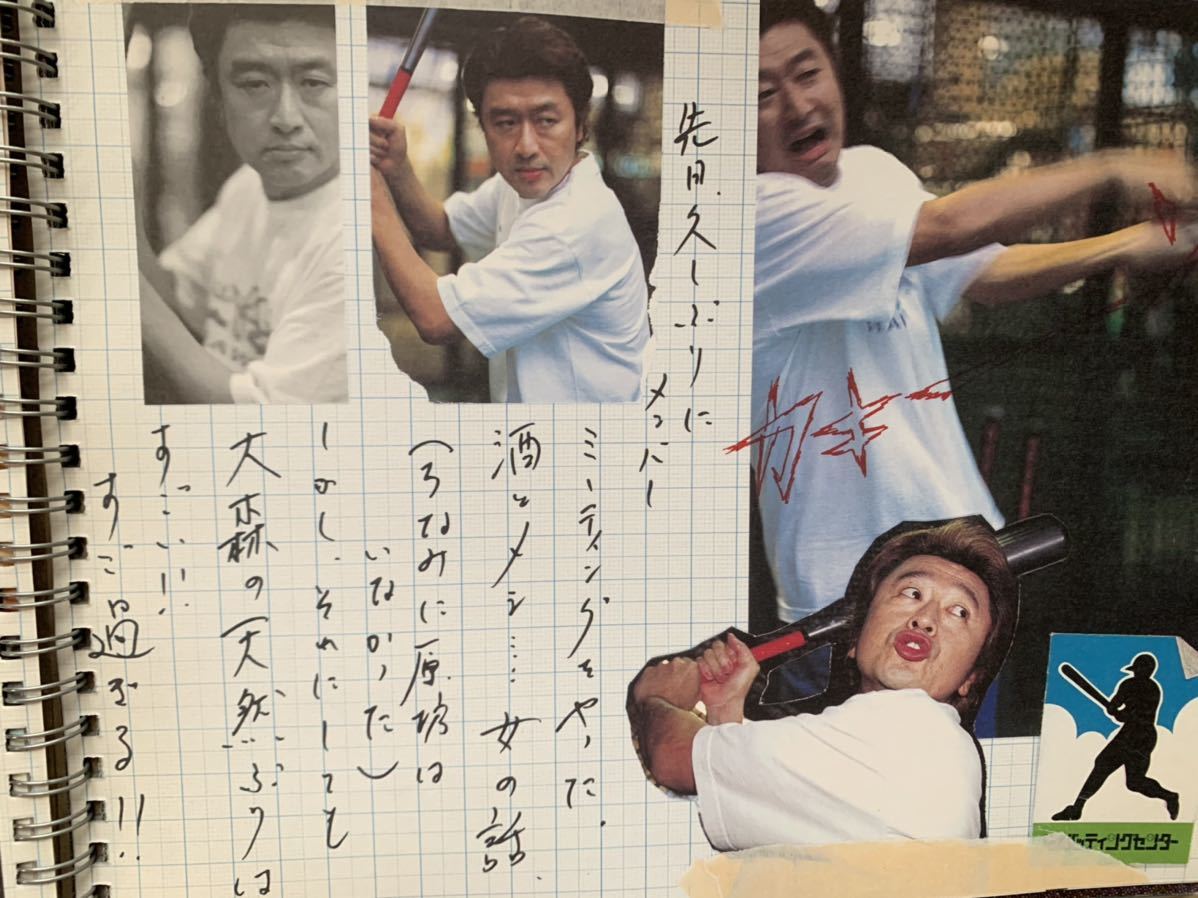 先日、久しぶりに
メンバー
ミーティングをやった。
酒とメシ……女の話。
(ちなみに原坊は
いなかった)
しかし、それにしても
大森の「天然」ぶりは
すごい!!
すご過ぎる!!
カキー
バッティングセンター